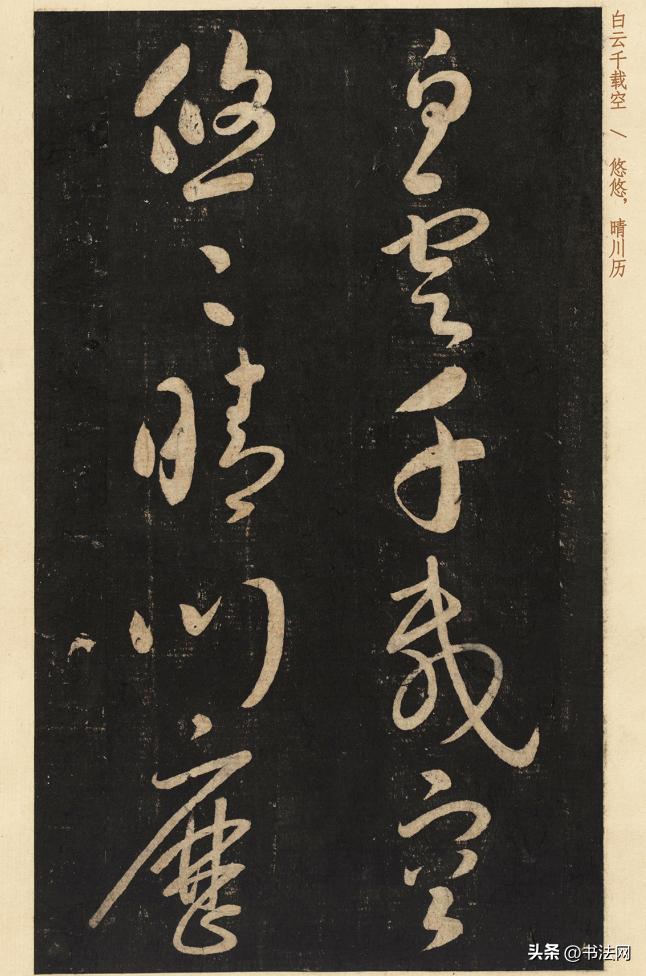 白雲千載空
悠〻晴川歷
白云千载空 \ 悠悠，晴川历
头条 @书法网